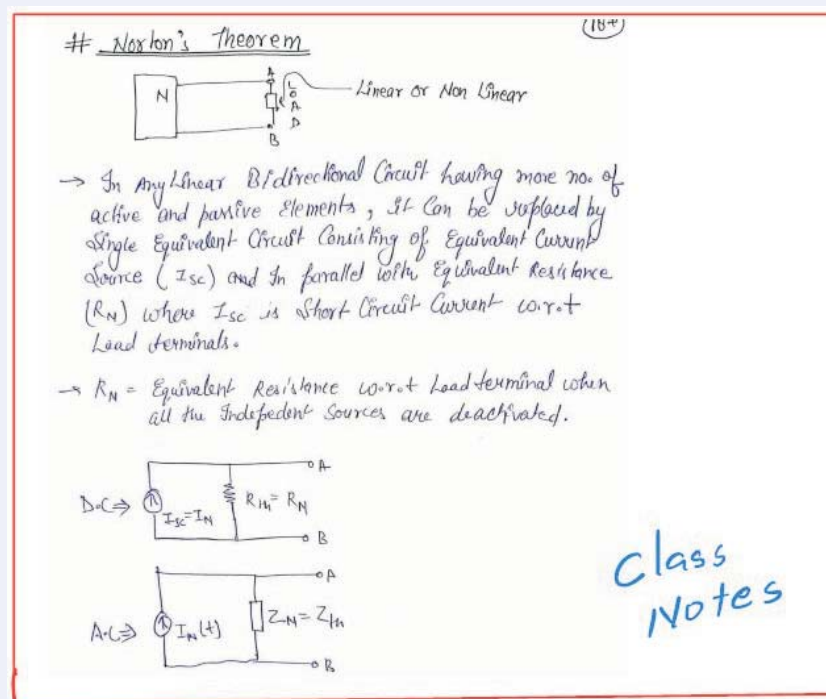 # Norton's Theorem
(18+)
N
A
LOAD
B
Linear or Non Linear
→ In Any Linear Bidirectional Circuit having more no. of
active and passive Elements, It Can be replaced by
Single Equivalent Circuit Consisting of Equivalent Current
Source (Isc) and In parallel with Equivalent Resistance
(RN) where Isc is Short Circuit Current w.r.t
Load terminals.
→ RN = Equivalent Resistance w.r.t Load terminal when
all the Indepedent Sources are deactivated.
D.C⇒
Isc=IN
Rth=RN
A
B
A.C⇒
IN(t)
ZN=Zth
A
B
Class
Notes